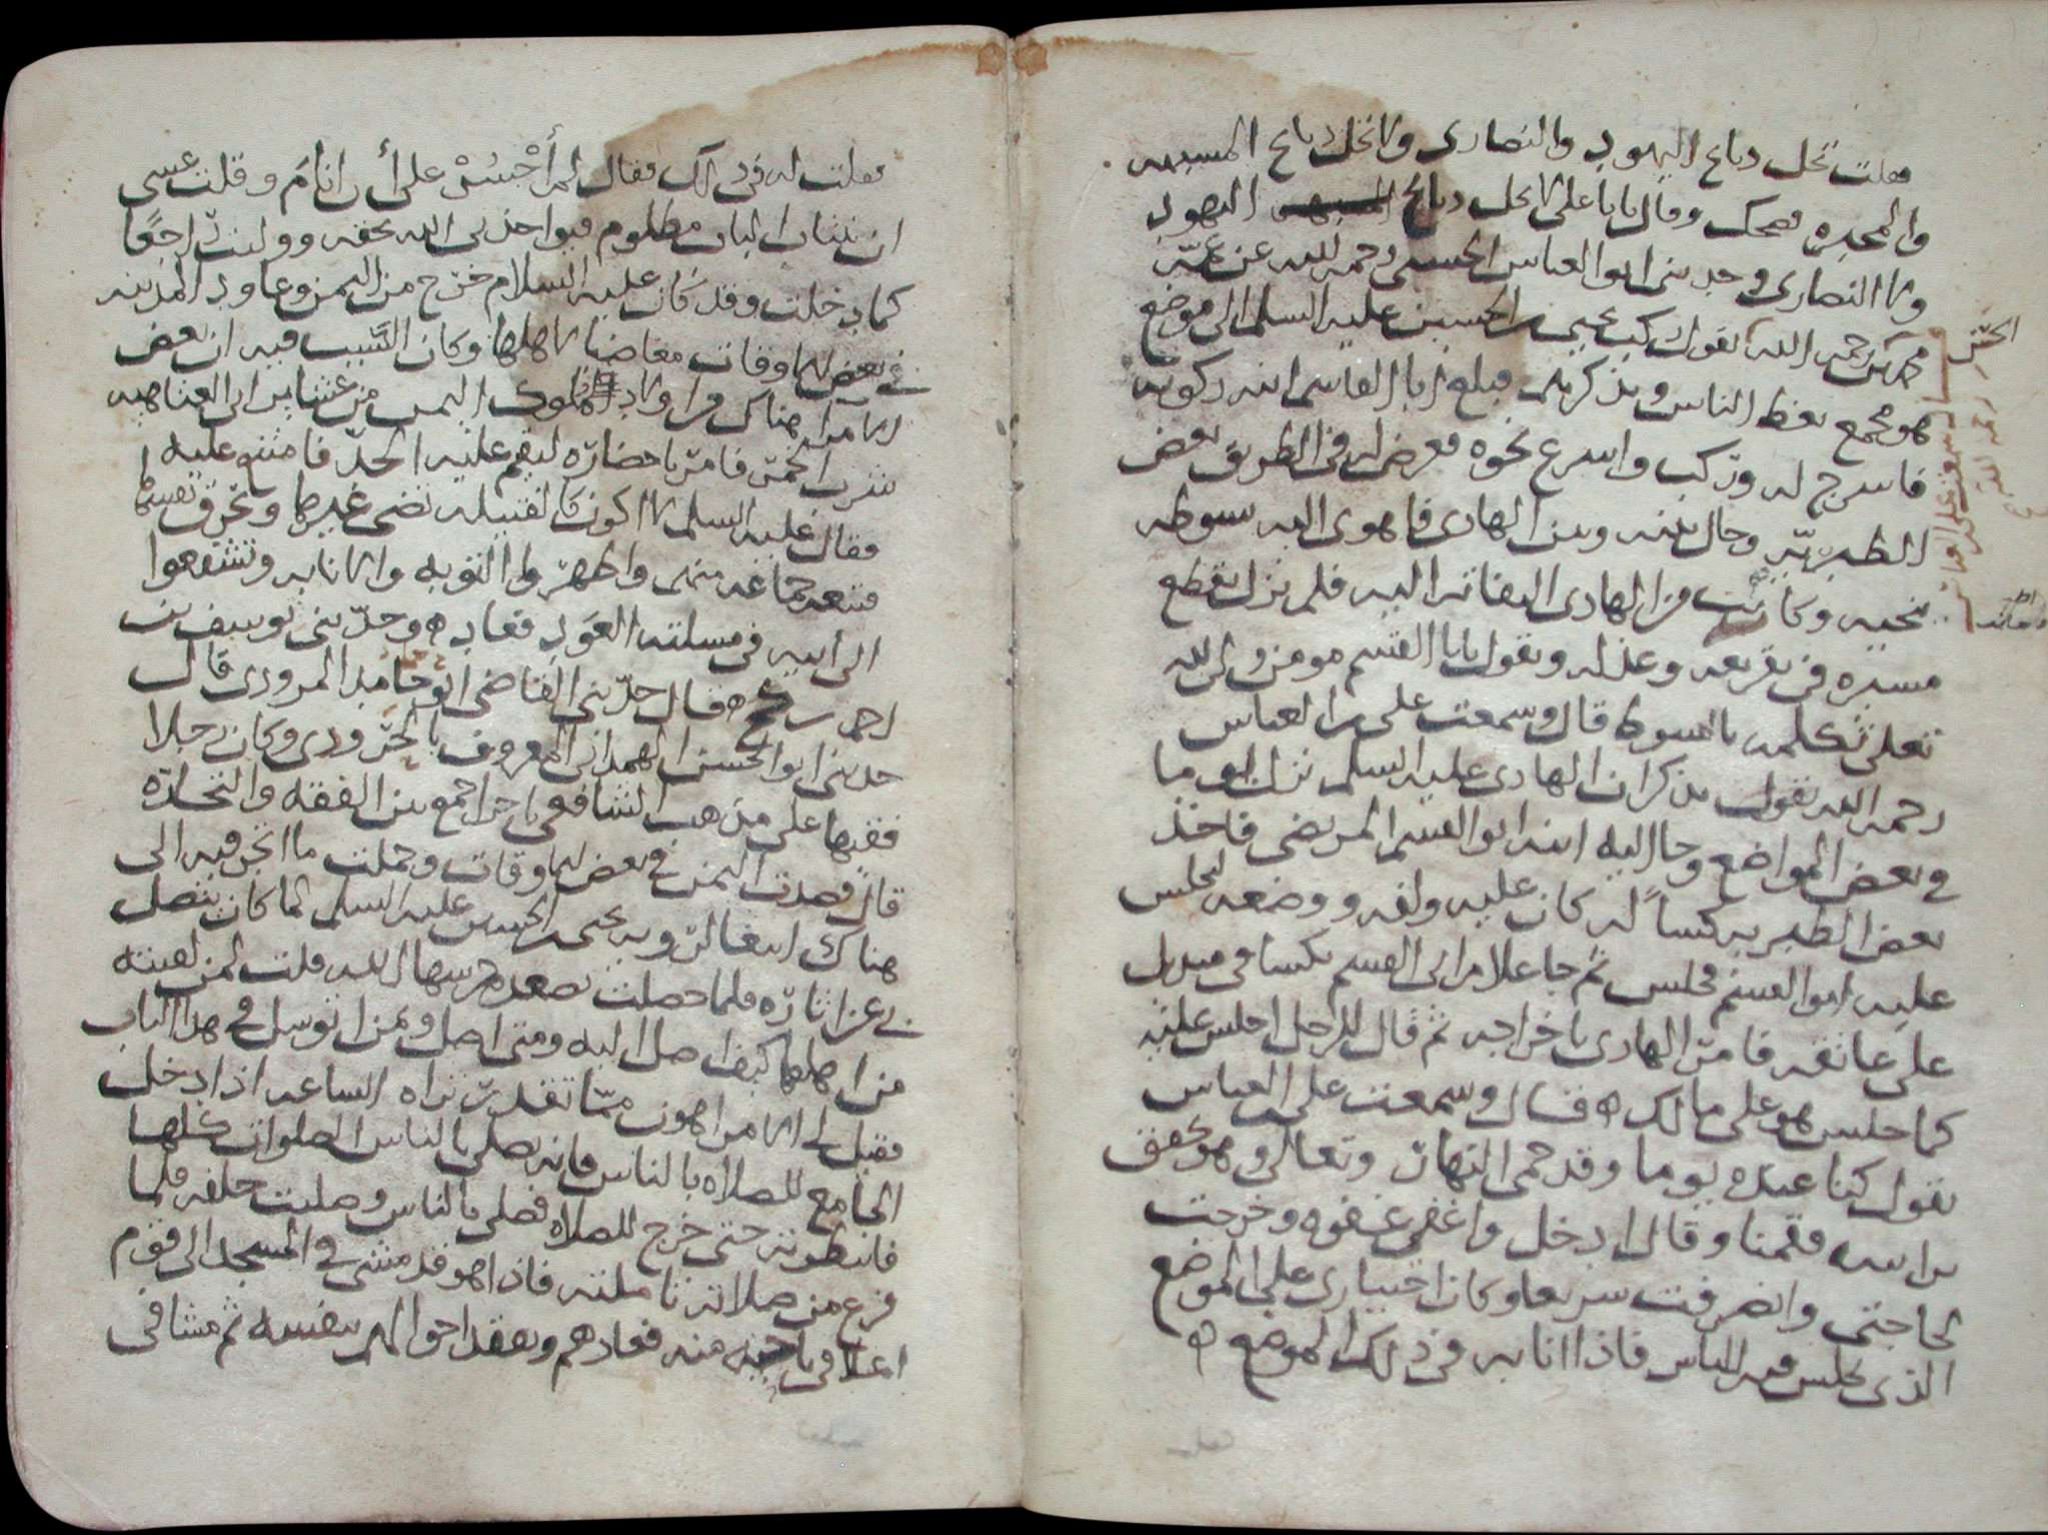 فقلت تحل ذبائح اليهود والنصارى ولا تحل ذبائح المشبهه
والمجبره فضحك وقال يابا علي لا تحل ذبائح اليهود
ولا النصارى وحدثني ابو العباس الحسني رحمه الله عن عمه
محمد بن رحمه الله يقول ركب يحيى بن الحسين عليه السلم الى موضع
هو مجمع يعظ الناس ويذكرهم فبلغ ابا القاسم ابنه ركوبه
فاسرج له وركب واسرع نحوه فعرض له في الطريق بعض
الطبريه وحال بينه وبين الهادي فاهوى اليه بسوطه
ينحيه وكانت من الهادي التفاته اليه فلم يزل يقطع
مسيره في تقريعه وعذله ويقول يابا القسم مومن ولي لله
تعلى تكلمه بالسوط قال وسمعت علي بن العباس
رحمه الله يقول يذكر ان الهادي عليه السلم نزل يوما
في بعض المواضع وجا اليه ابنه ابو القسم المرتضى فاخذ
بعض الطبريه كساً له كان عليه ولفه ووضعه ليجلس
عليه ابو القسم فجلس ثم جا غلام ابي القسم بكسا في منديل
على عاتقه فامر الهادي باخراجه ثم قال للرجل اجلس عليه
كما جلس هو على مالك ه قال وسمعت علي بن العباس
يقول كنا عنده يوما وقد حمى النهار وتعالى وهو يخفق
براسه فقمنا وقال ادخل واغفي غفوه وخرجت
لحاجتي وانصرفت سريعا وكان اجتيازي على الموضع
الذي يجلس فيه للناس فاذا انا به في ذلك الموضع ه
الحسن
رحمه الله
فقلت له في ذلك فقال لم أجسُرْ على أن انام وقلت عسى
ان ينتاب الباب مظلوم فيواخذني الله بحقه ووليت راجعًا
كما دخلت وقد كان عليه السلام خرج من اليمن وعاود المدينه
في بعض الاوقات مغاضبا لاهلها وكان السبب فيه ان بعض
الامرا هناك من اولاد ملوك اليمن من عشاير ابي العتاهيه
شرب الخمر فامر باحضاره ليقيم عليه الحد فامتنع عليه
فقال عليه السلم لا اكون كالفتيله تضي غيرها وتحرق نفسها
فتبعه جماعه منهم واظهروا التوبه والانابه وتشفعوا
الى ابيه في مسلته العود فعاد ه وحدثني يوسف بن
قال حدثني القاضي ابو حامد المروردي قال
حدثني ابو الحسن الهمداني المعروف بالحروري وكان رجلا
فقيها على مذهب الشافعي تاجرا جمع بين الفقه والتجاره
قال قصدت اليمن في بعض الاوقات وحملت ما اتجر فيه الى
هناك ابتغا لرويه يحيى بن الحسين عليه السلم لما كان يتصل
بي عن اثاره فلما حصلت بصعده حرسها الله قلت لمن لقيته
من اهلها كيف اصل اليه ومتى اصل وبمن اتوسل في هذا الباب
فقيل لي الامر اهون مما تقدر تراه الساعه اذا دخل
الجامع للصلاه بالناس فانه يصلي بالناس الصلوات كلها
فانتظرته حتى خرج للصلاه فصلى بالناس وصليت خلفه فلما
فرغ من صلاته تاملته فاذا هو قد مشى في المسجد الى قوم
اعلا في ناحيه منه فعادهم وتفقد احوالهم بنفسه ثم مشا في